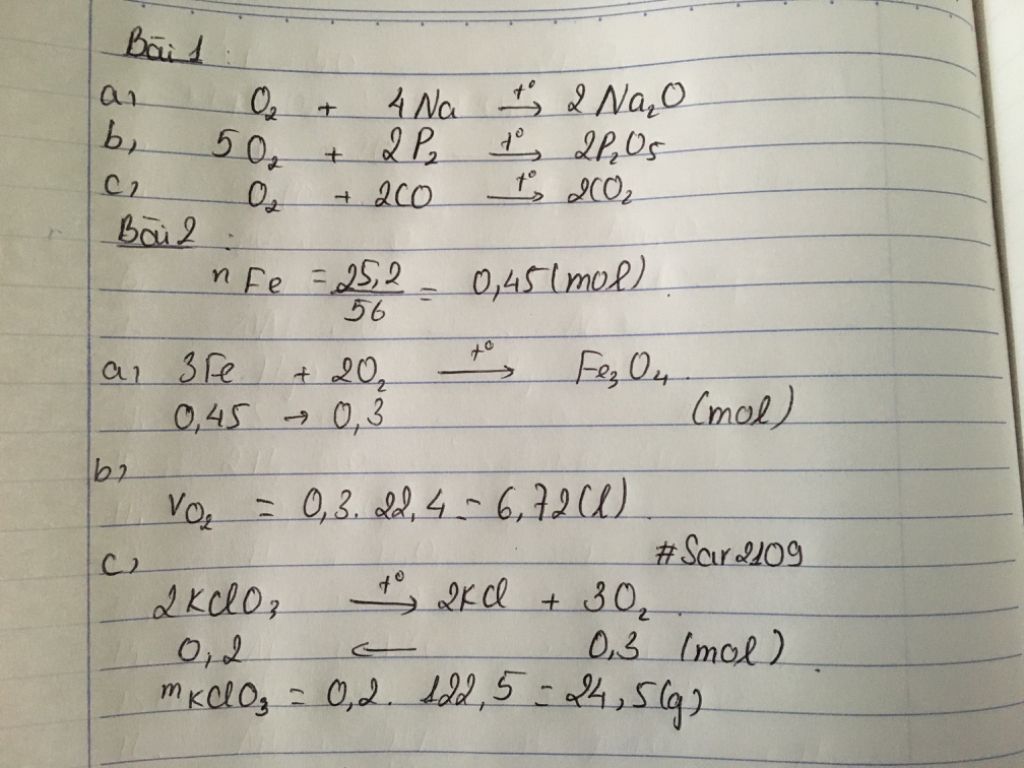 Bài 1:
a, O₂ + 4Na t°→ 2Na₂O
b, 5O₂ + 2P₂ t°→ 2P₂O₅
c, O₂ + 2CO t°→ 2CO₂
Bài 2:
nFe = 25,2/56 = 0,45 (mol).
a, 3Fe + 2O₂ t°→ Fe₃O₄
0,45 → 0,3 (mol)
b,
VO₂ = 0,3.22,4 = 6,72 (l)
c, #Sar2109
2KClO₃ t°→ 2KCl + 3O₂
0,2 ← 0,3 (mol)
mKClO₃ = 0,2.122,5 = 24,5 (g)